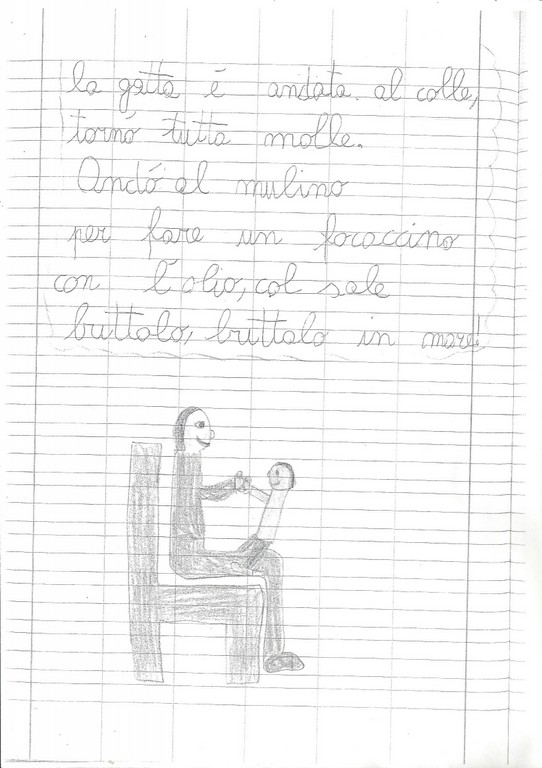 la gatta é andata al colle,
tornó tutta molle.
Andó al mulino
per fare un focaccino
con l'olio, col sale
buttalo, buttalo in mare!